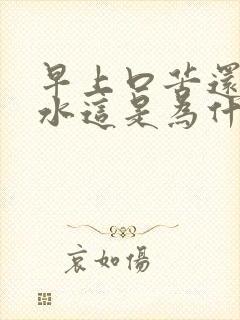 早上口苦還
水這是為什
哀如傷